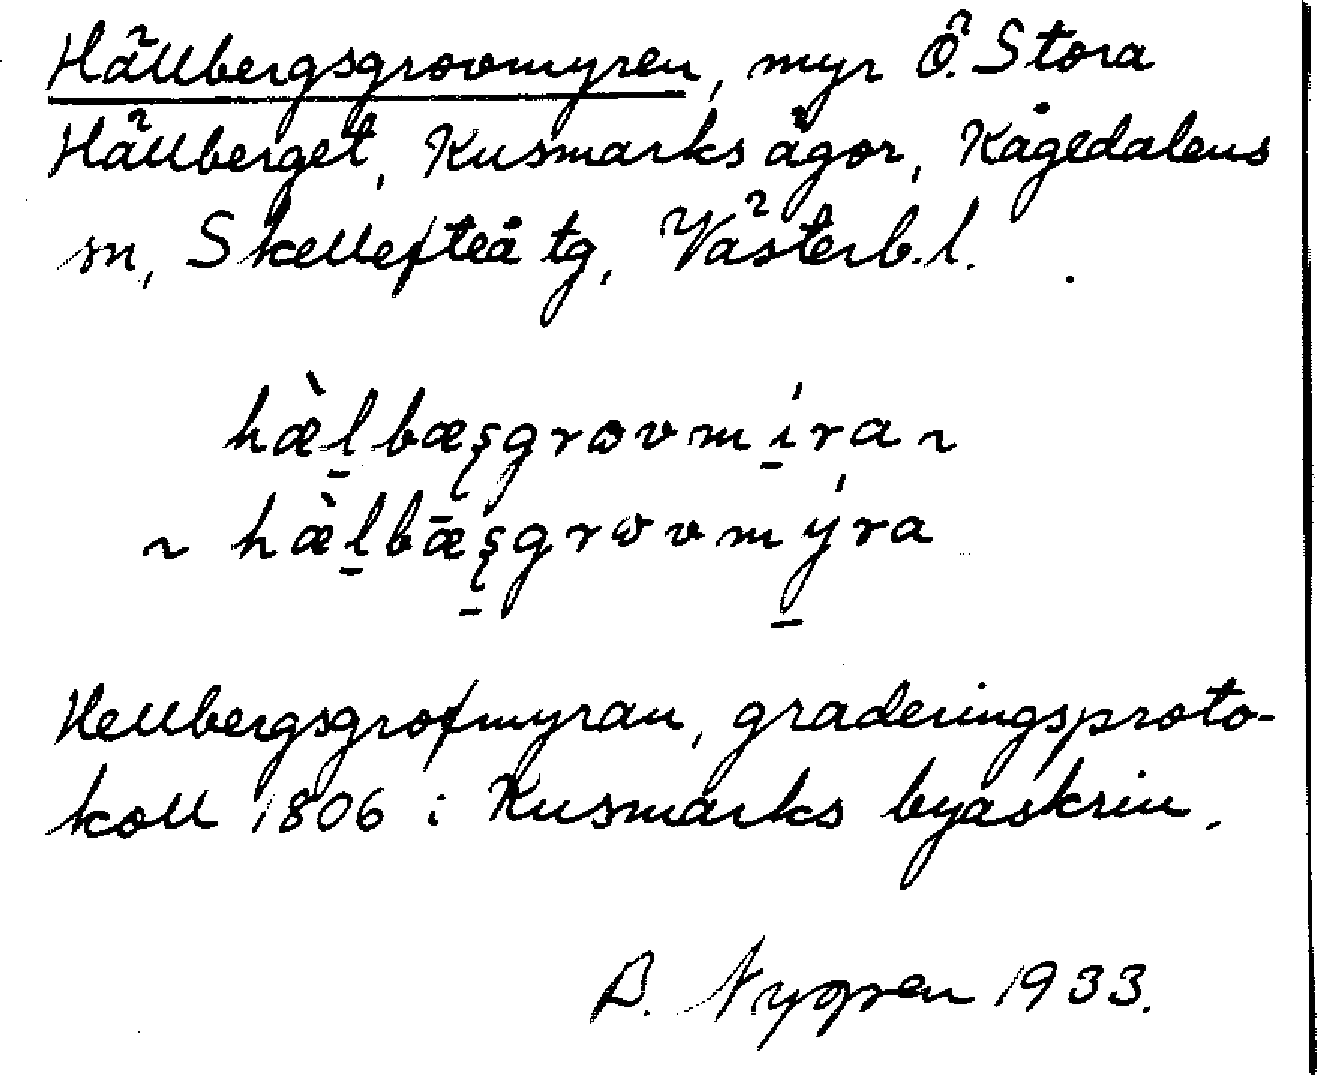 Hällbergsgrovmyren, myr Ö. Stora
Hällberget, Kusmarks ägor, Kågedalens
sn, Skellefteå tg, Västerb.l.
hæ̀l̠bæʂgrovmí̠ra ~
~ hæ̀l̠bǣʂ̠grovmý̠ra
Hellbergsgrofmyran, graderingsproto-
koll 1806 i Kusmarks byaskrin.
B. Nygren 1933.